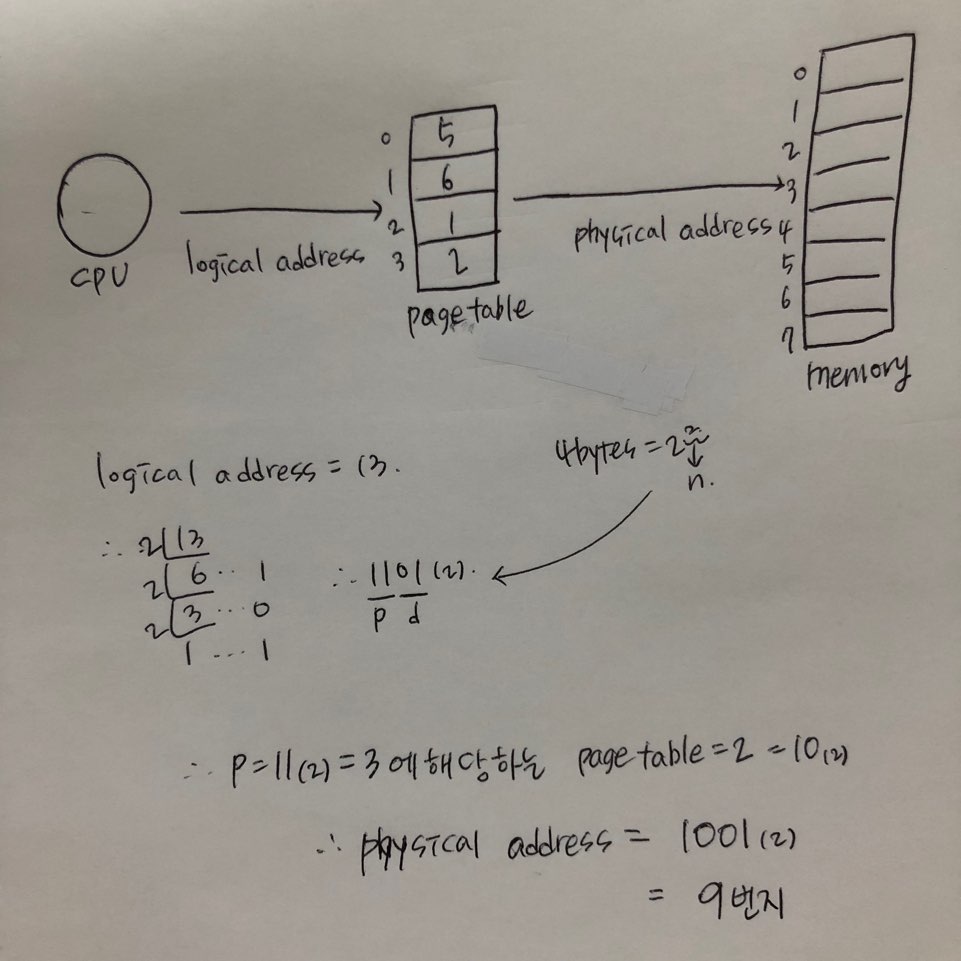 0
1
2
3
4
5
6
7
0 5
1 6
2 1
3 2
CPU
logical address
page table
physical address
memory
logical address = 13.
4bytes = 2²
n.
∴ 2 13
2 6 ·· 1
2 3 ··· 0
1 ···· 1
∴ 1101(2).
p d
∴ p=11(2)=3에 해당하는 page table=2=10(2)
∴ physical address = 1001(2)
= 9번지